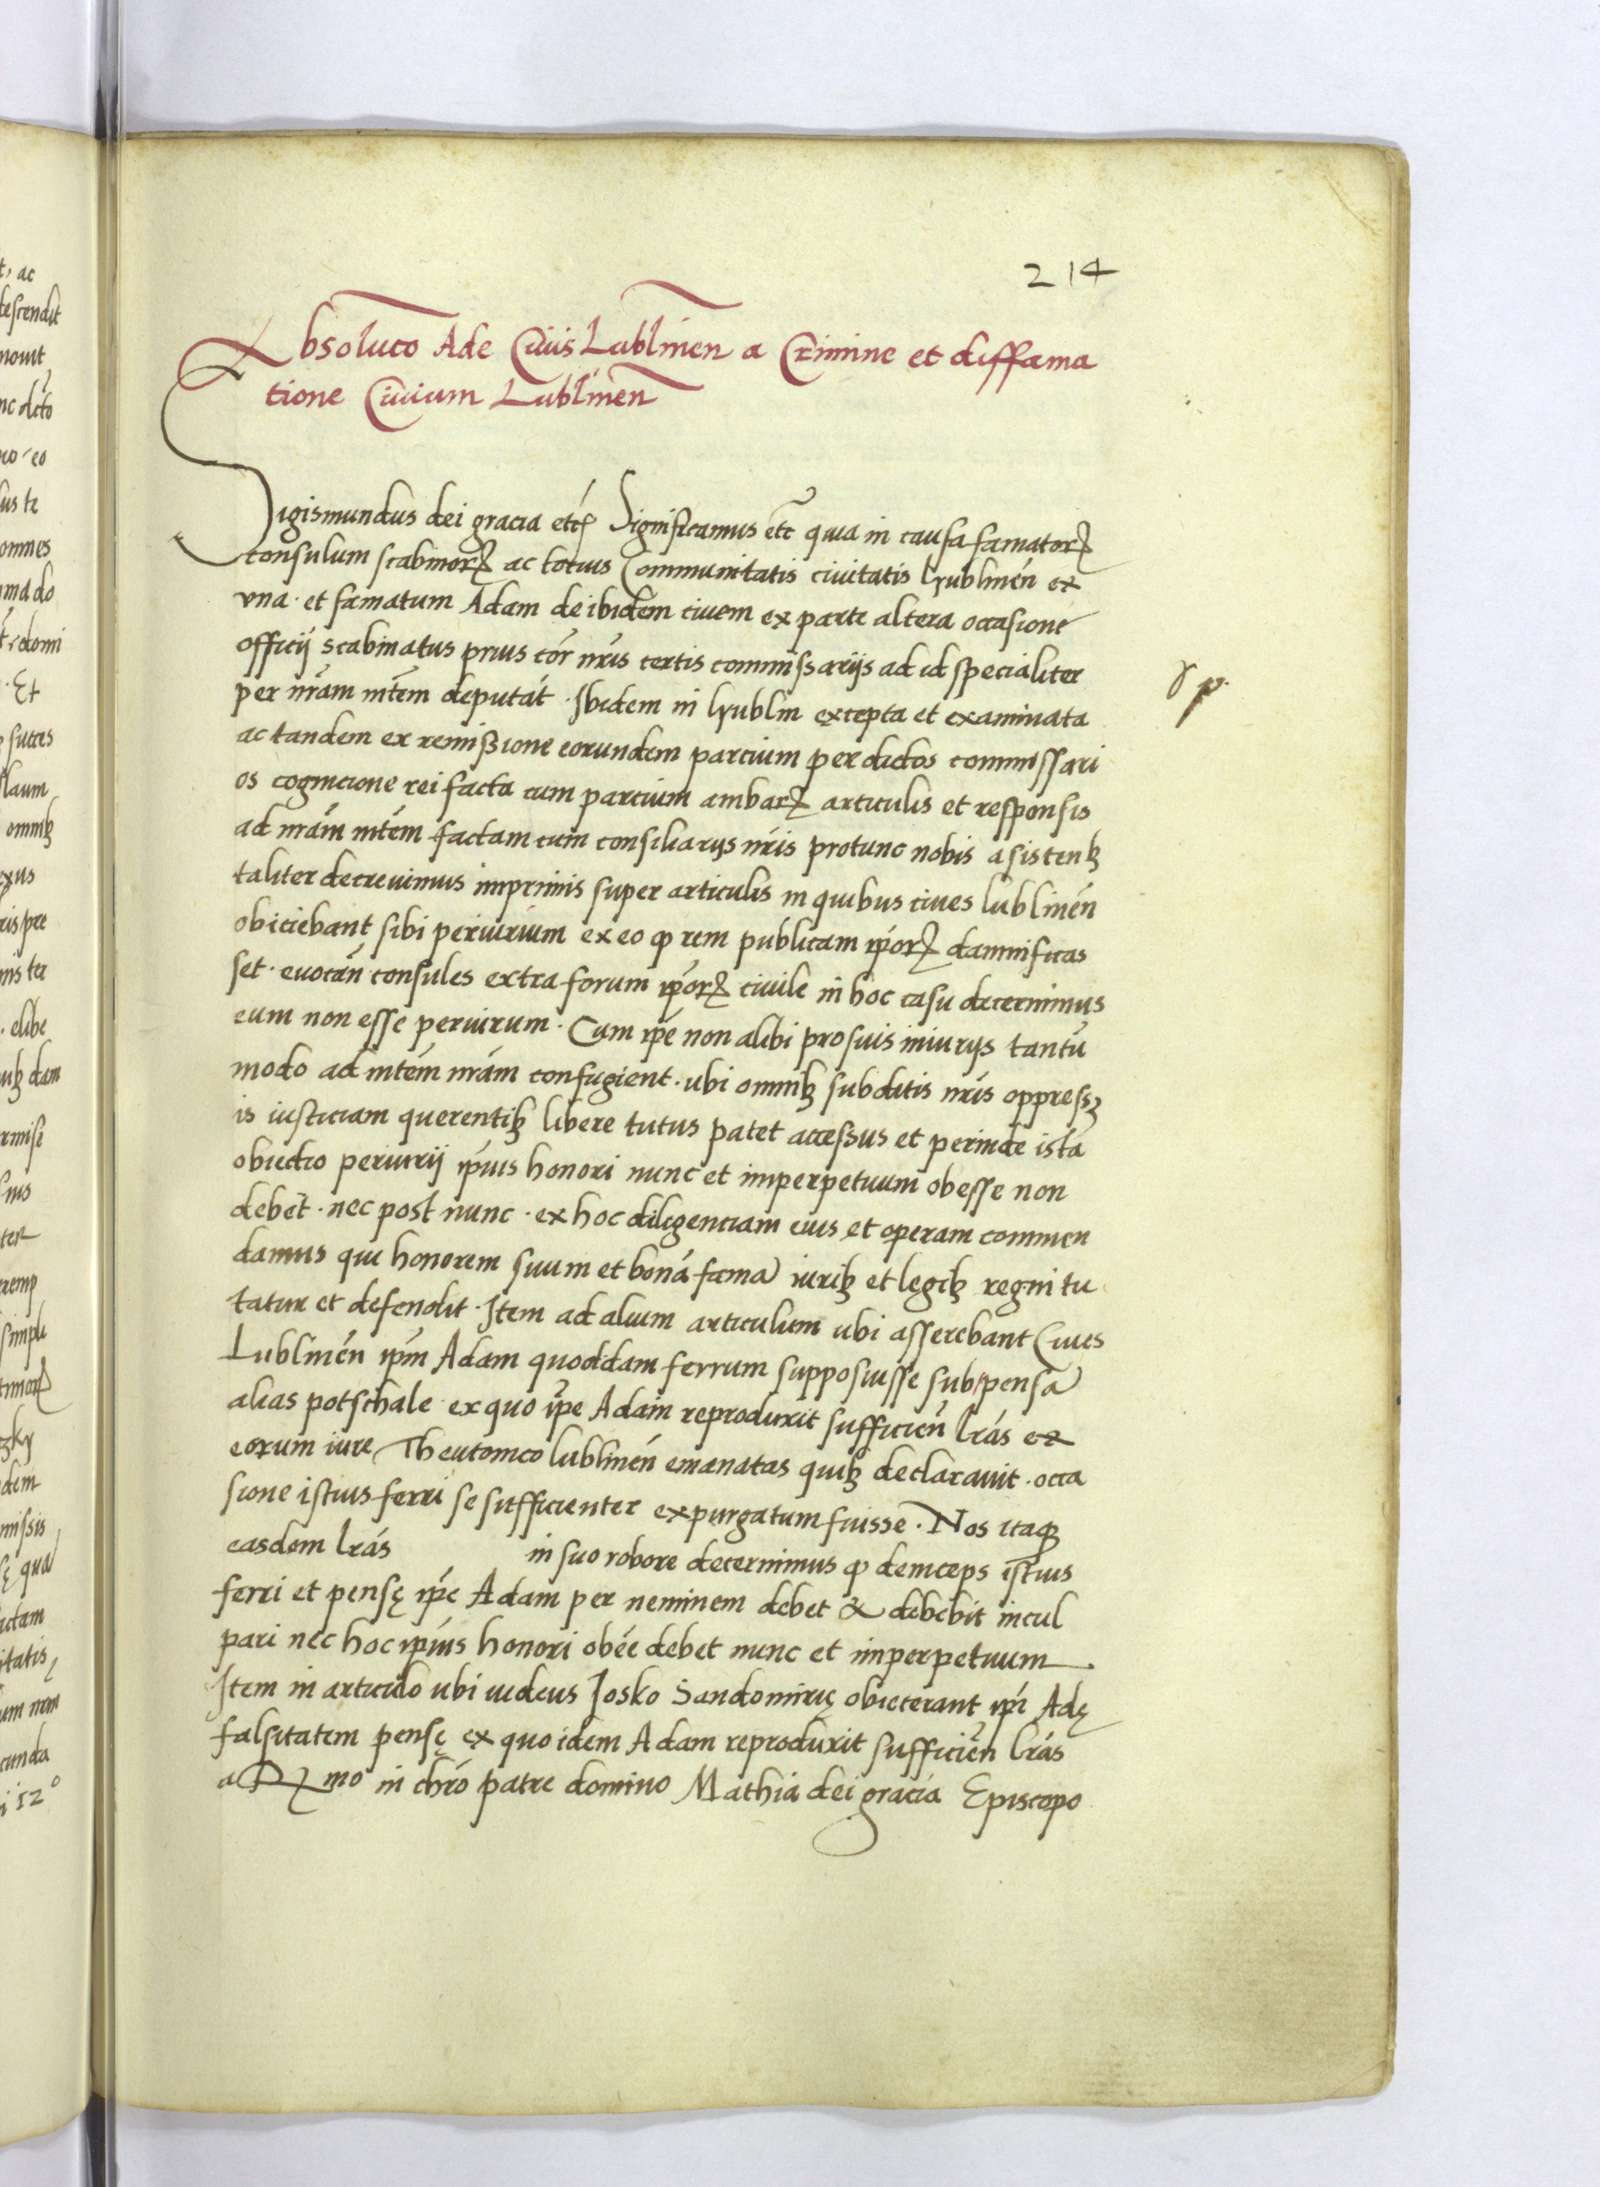 214
Absolucō Ade Civis Lublinen̄ a Crimine et diffama
tione Civium Lublinen̄
Sigismundus dei gracia etc̄ Significamus etc̄ quia in causa famatorꝝ
consulum scabinorꝝ ac totius Communitatis civitatis Lyublinen̄ ex
vna · et famatum Adam de ibidem civem ex parte altera occasione
officij scabinatus prius cor̄ nr̄is certis commissarijs ad id specialiter
per nr̄am mtēm deputāt · Ibidem in Lyublin excepta et examinata
ac tandem ex remissione eorundem parcium per dictos commissari
os cognicione rei facta cum parcium ambarꝝ articulis et responsis
ad nr̄am mtēm factam cum consiliarijs nr̄is protunc nobis asistentꝫ
taliter decrevimus imprimis super articulis in quibus cives lublinen̄
obiciebant sibi periurium ex eo ꝙ rem publicam ip̄orꝝ damnificas
set · evocān consules extra forum ip̄orꝝ civile in hoc casu decernimus
eum non esse periurum · Cum ip̄e non alibi pro suis iniurijs tantū
modo ad mtēm nr̄am confugient · ubi omnibꝫ subditis nr̄is oppressꝫ
is iusticiam querentibꝫ libere tutus patet accessus et perinde ista
obiectio periurij ip̄ius honori nunc et imperpetuum obesse non
debet · nec post nunc · ex hoc diligenciam eius et operam commen
damus qui honorem suum et bonā famā iuribꝫ et legibꝫ regni tu
tatur et defendit · Item ad alium articulum ubi asserebant Cives
Lublinen̄ ip̄m Adam quoddam ferrum supposuisse sub pensa
alias potschale ex quo ip̄e Adam reproduxit sufficien̄ lr̄as ex
eorum iure Theutonico lublinen̄ emanatas quibꝫ declaravit · occa
sione istius ferri se sufficienter expurgatum fuisse · Nos itaqꝫ
easdem lr̄as in suo robore decernimus ꝙ deinceps istius
ferri et pensę ip̄e Adam per neminem debet & debebit incul
pari nec hoc ip̄ius honori obēe debet nunc et imperpetuum
Item in articulo ubi iudeus Josko Sandomirię obiecerant ip̄i Adę
falsitatem pensę ex quo idem Adam reproduxit sufficien̄ lr̄as
a Rꝫmo in chr̄o patre domino Mathia dei gracia Episcopo